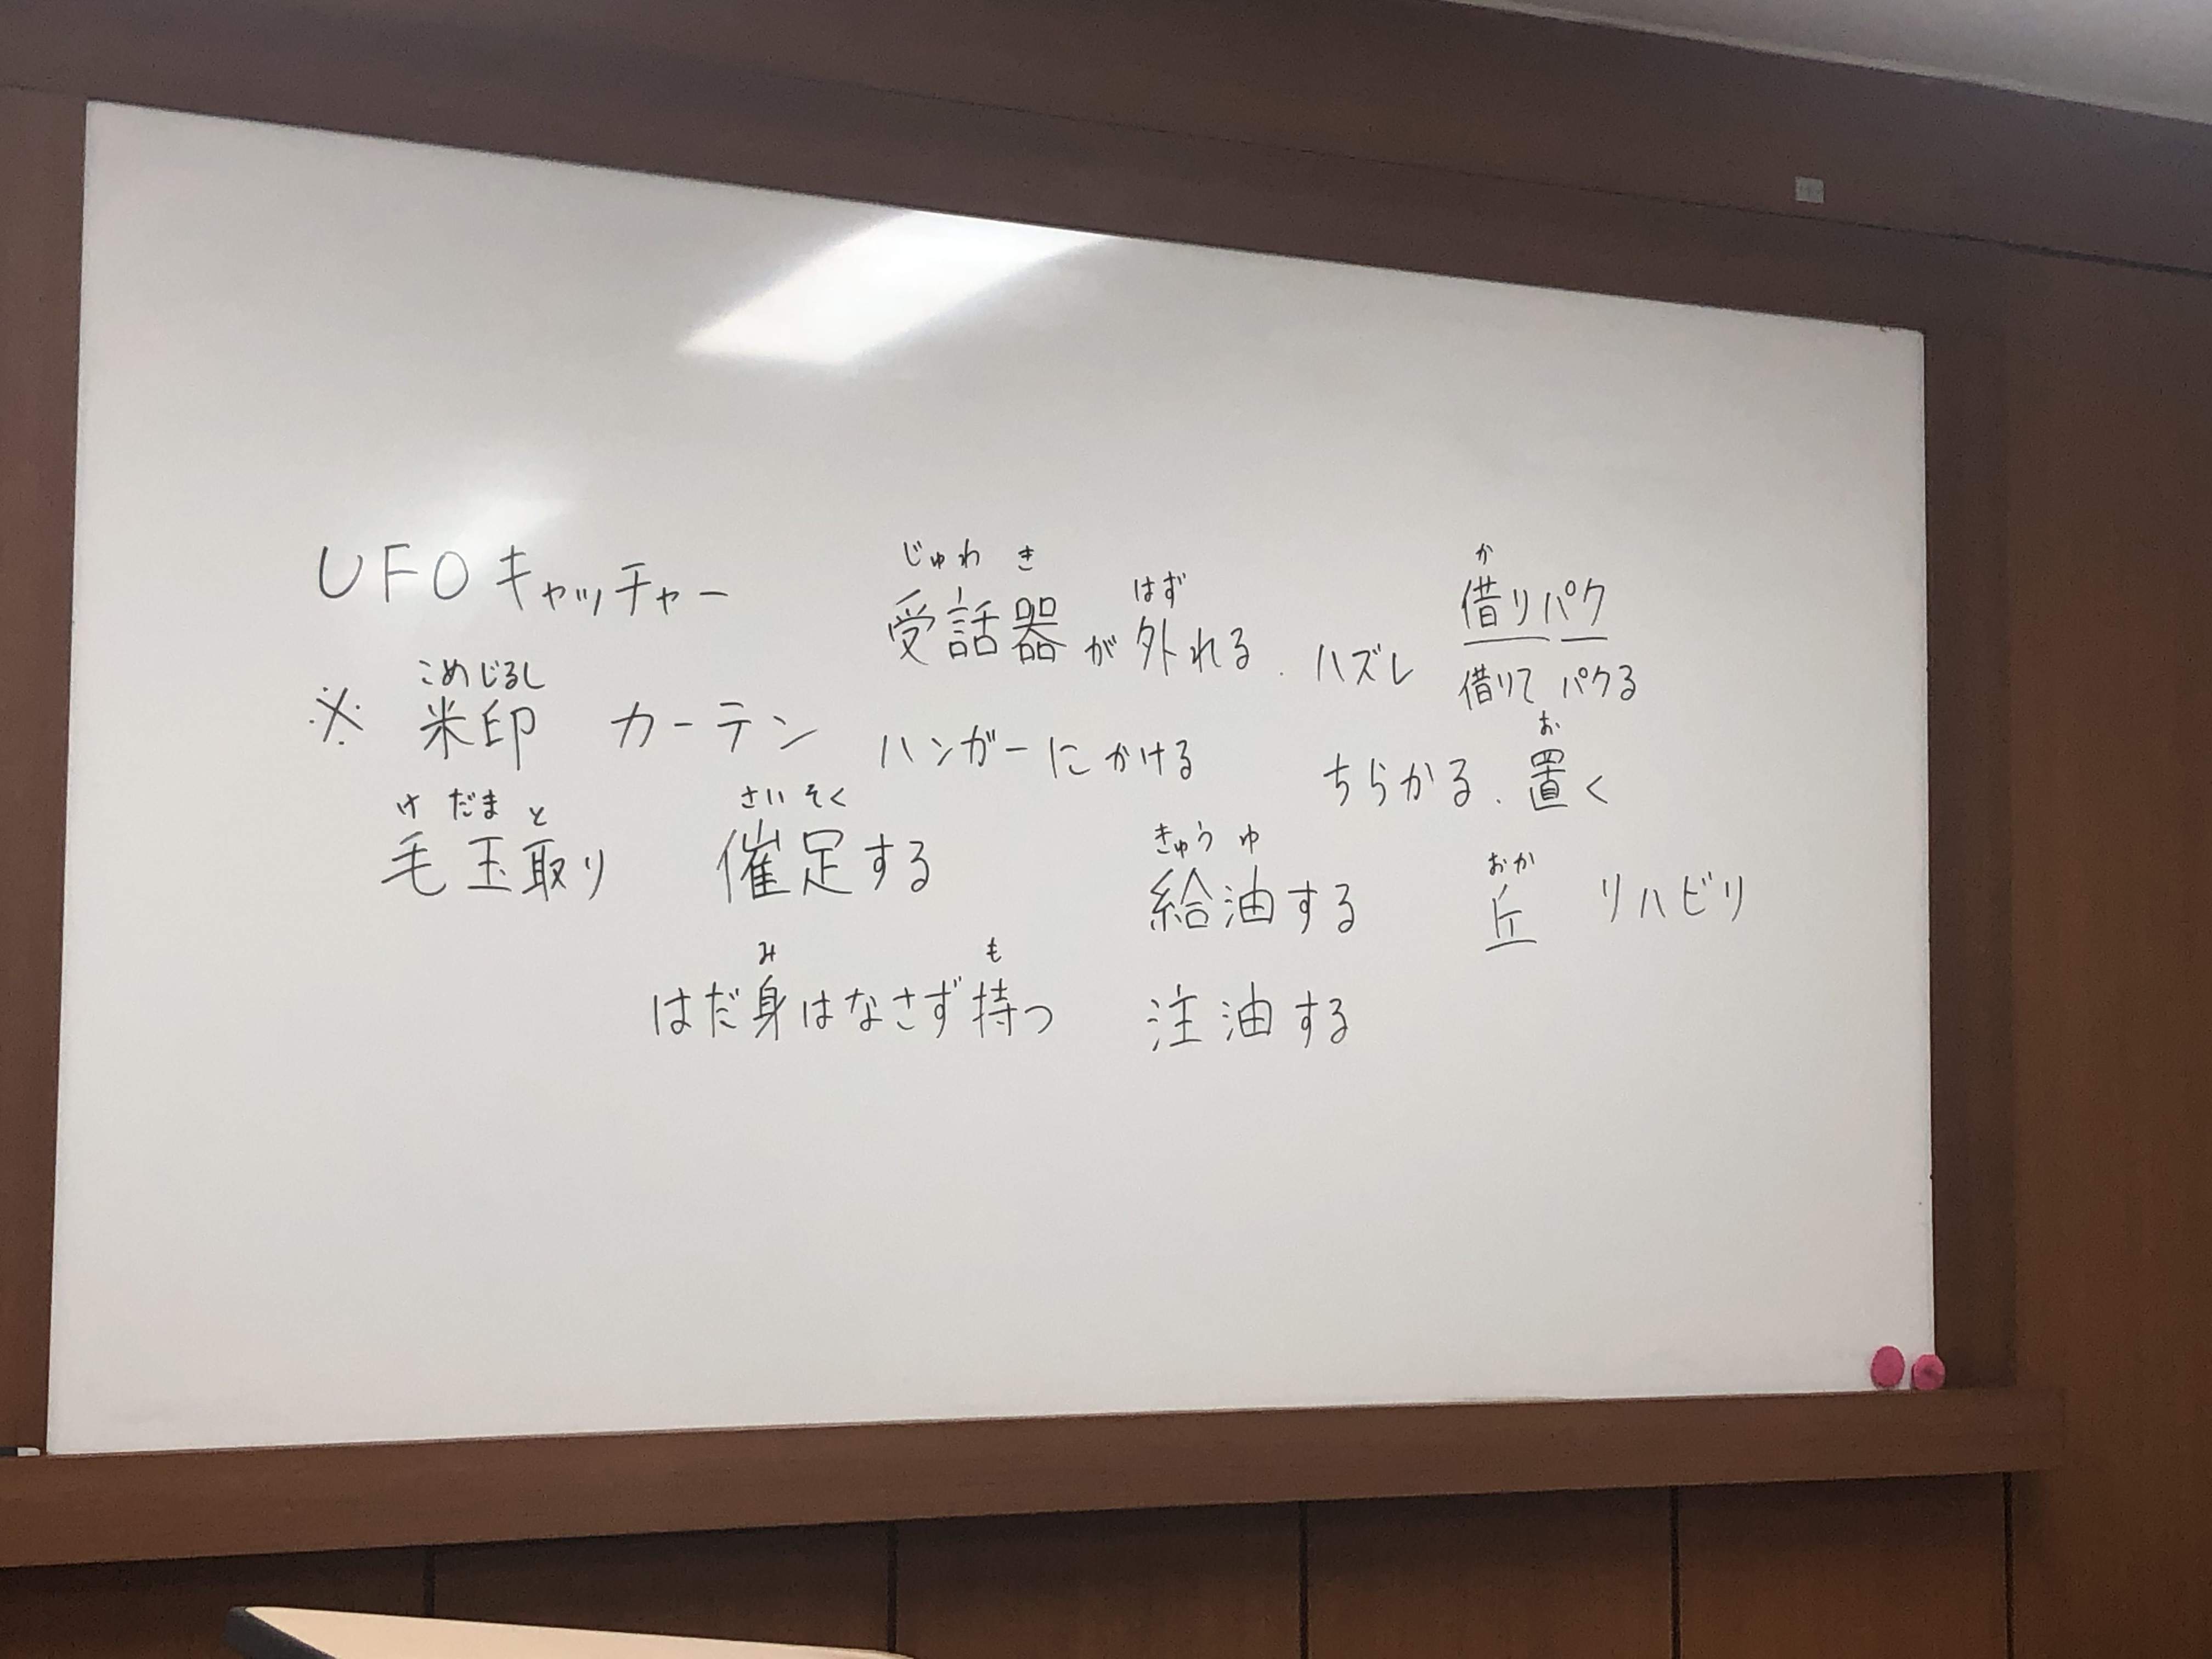 UFOキャッチャー
じゅわき はず か
受話器が外れる．ハズレ 借りパク
借りて パクる
こめじるし
※ 米印 カーテン ハンガーにかける
お
ちらかる、置く
けだまと さいそく
毛玉取り 催足する
きゅうゆ おか
給油する 丘 リハビリ
み も
はだ身はなさず持つ 注油する